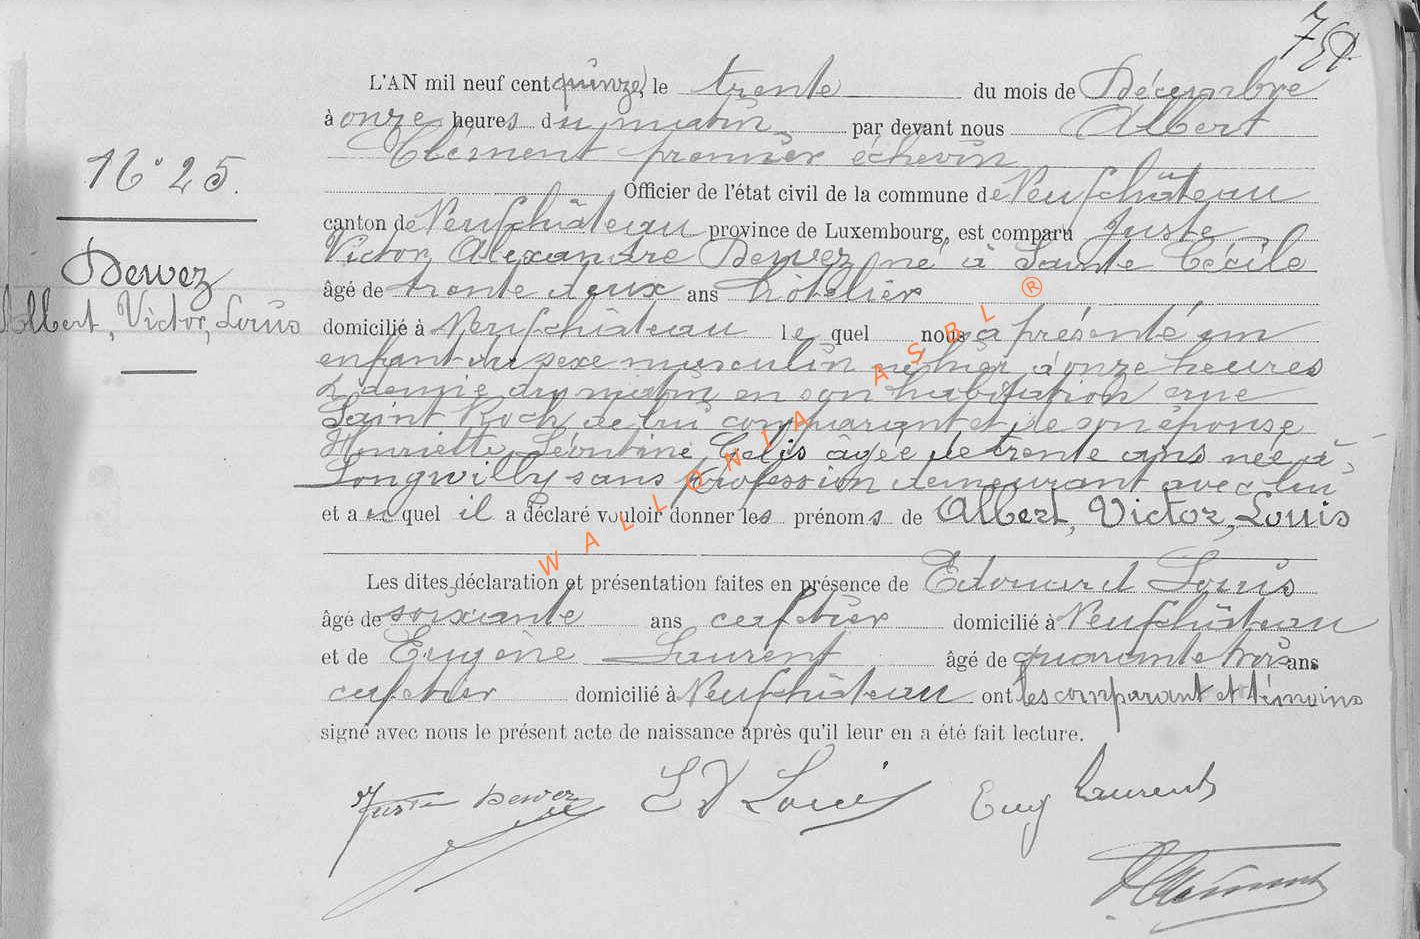 L'AN mil neuf cent quinze, le trente du mois de Décembre
à onze heures du matin par devant nous Albert
Clément premier échevin
N° 25.
Officier de l'état civil de la commune de Neufchâteau
canton de Neufchâteau province de Luxembourg, est comparu Juste
Victor Alexandre Dewez né à Sainte Cécile
Dewez
âgé de trente deux ans hôtelier
Albert, Victor, Louis
domicilié à Neufchâteau lequel nous a présenté un
enfant du sexe masculin né hier à onze heures
& demie du matin en son habitation rue
Saint Roch de lui comparant et de son épouse
Henriette Léontine Gelis âgée de trente ans née à
Longwilly sans profession demeurant avec lui
et auquel il a déclaré vouloir donner les prénoms de Albert, Victor, Louis
WALLONIA ASBL ®
Les dites déclaration et présentation faites en présence de Edouard Louis
âgé de soixante ans cafetier domicilié à Neufchâteau
et de Eugène Laurent âgé de quarante trois ans
cafetier domicilié à Neufchâteau ont les comparant et témoins
signé avec nous le présent acte de naissance après qu'il leur en a été fait lecture.
Juste Dewez Ed Louis Eug Laurent
Clément